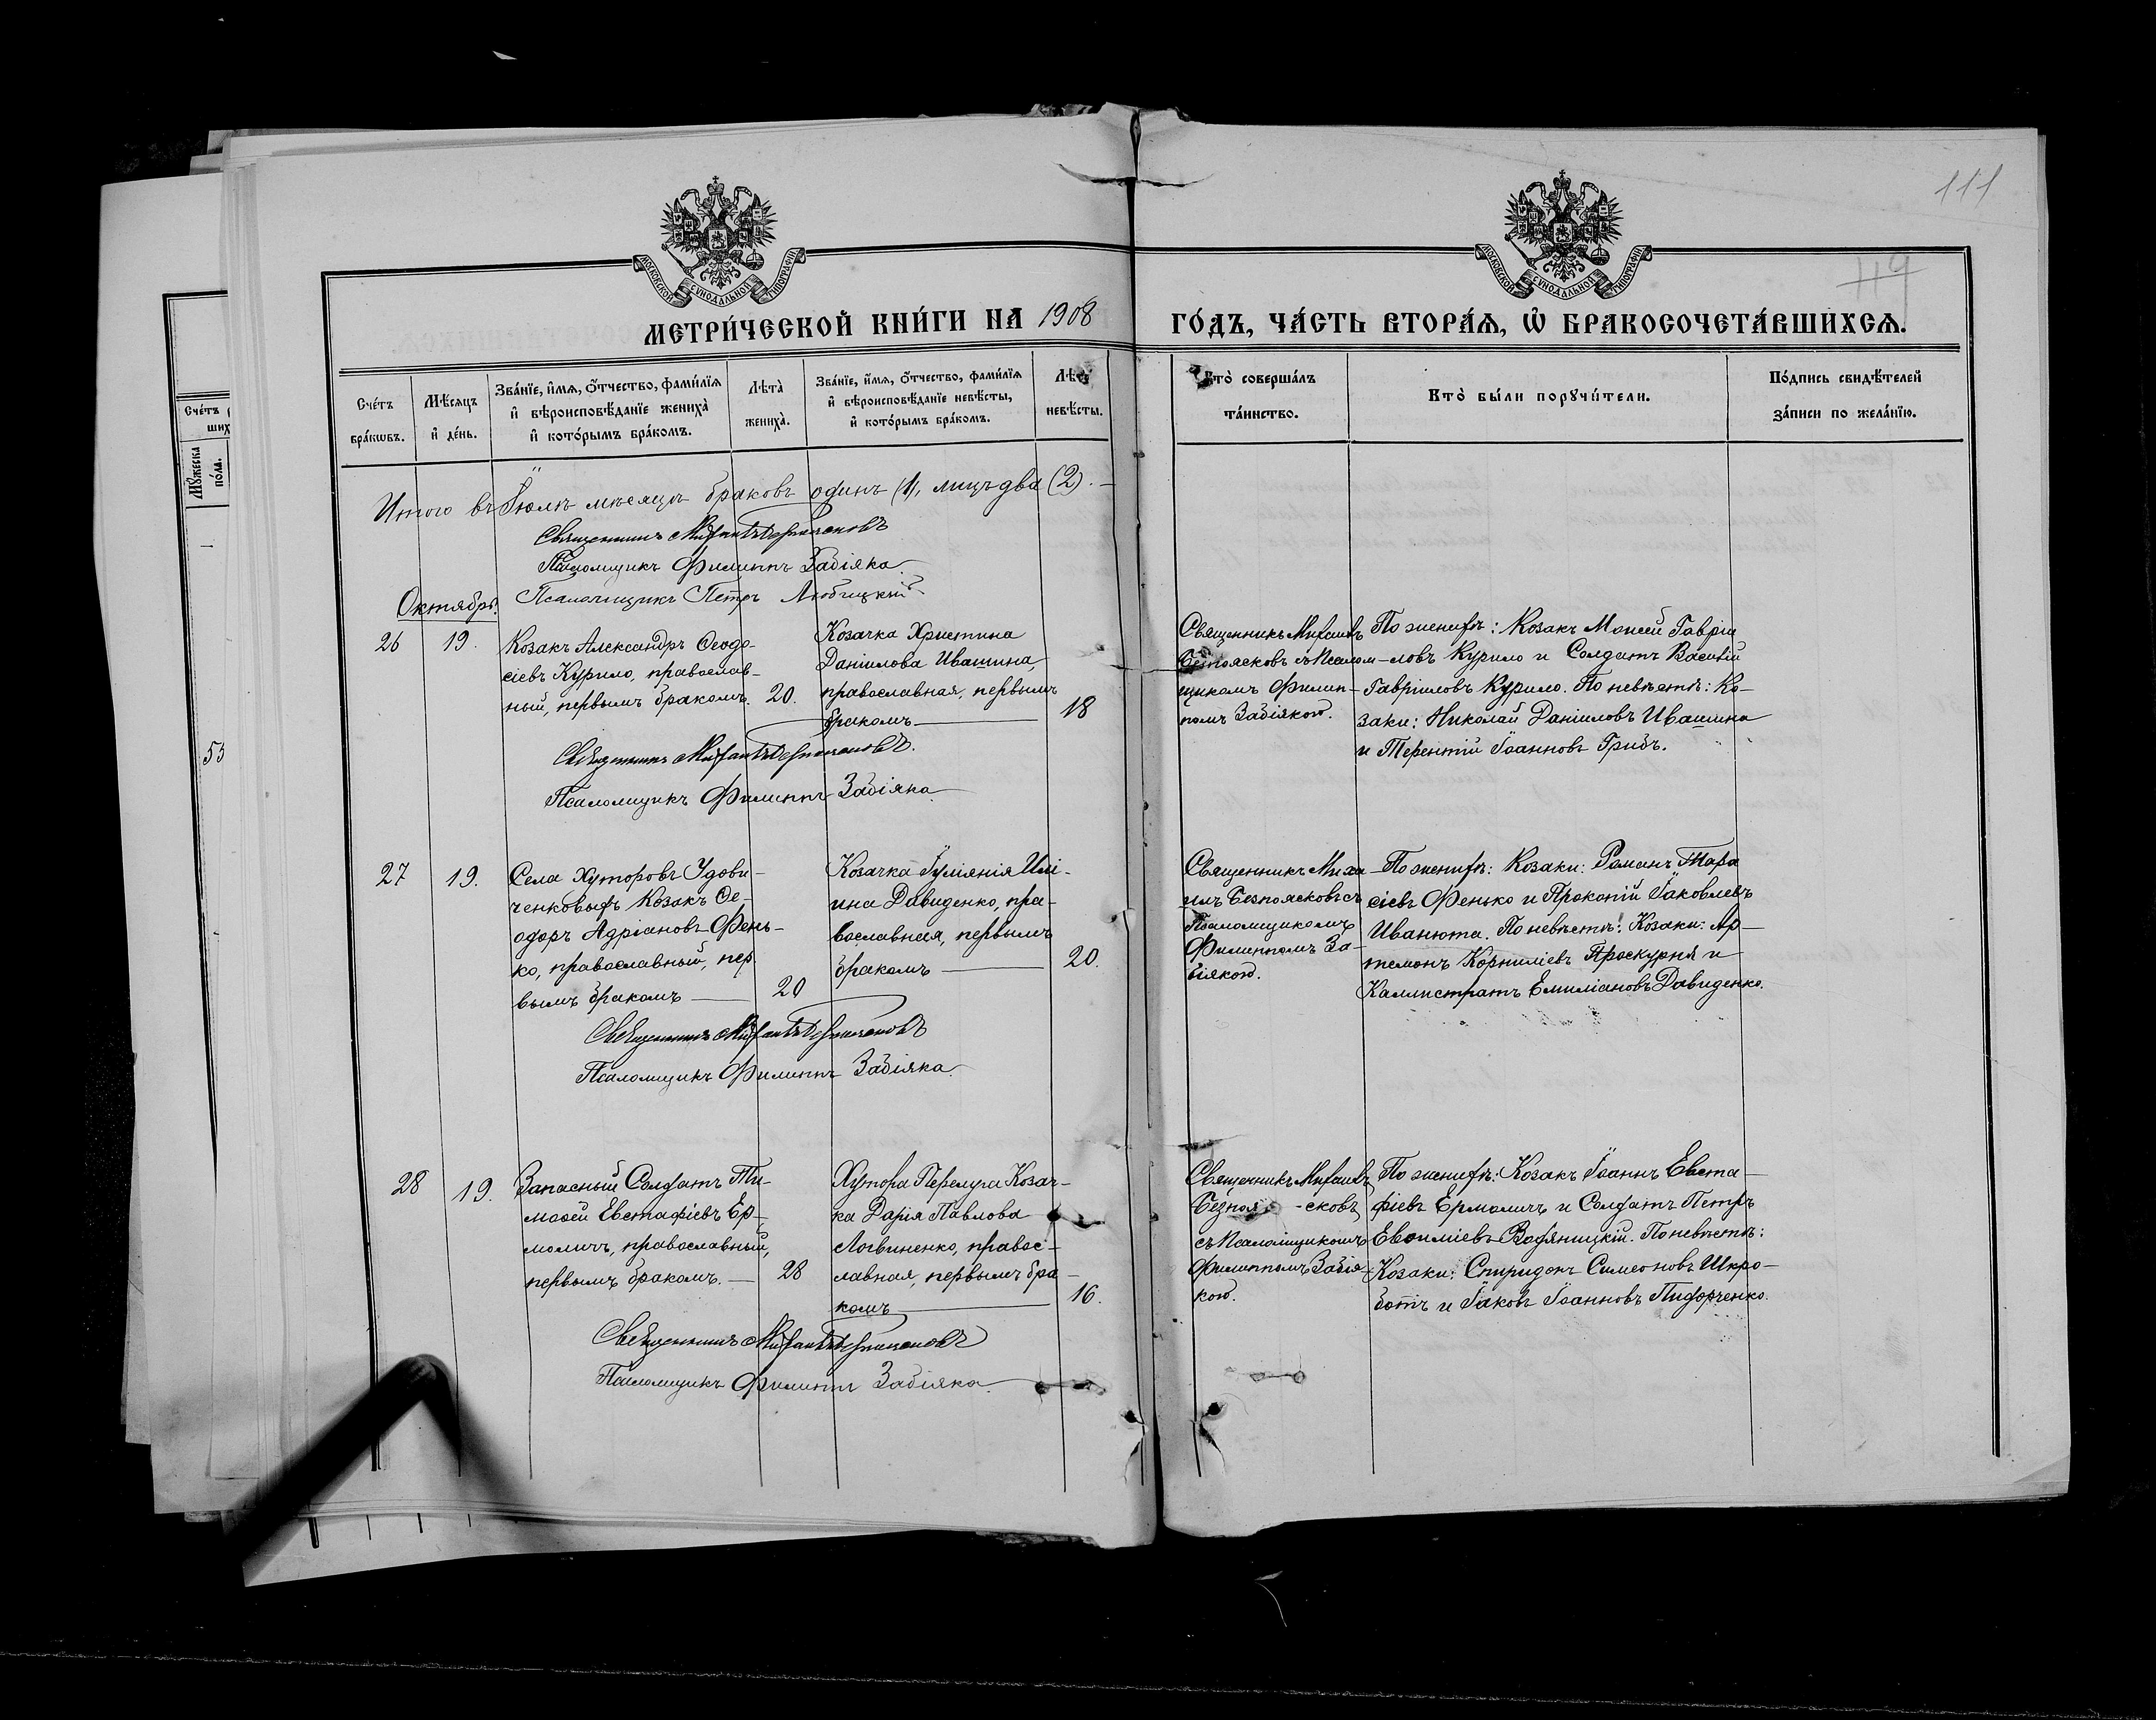 111
119
МОСКОВСКОЙ СѴНОДАЛЬНОЙ ТИПОГРАФІИ
МОСКОВСКОЙ СѴНОДАЛЬНОЙ ТИПОГРАФІИ
МЕТРИ́ЧЕСКОЙ КНИ́ГИ НА 1908
ГО́ДЪ, ЧА́СТЬ ВТОРА́Ѧ, Ѡ҆ БРАКОСОЧЕТА́ВШИХСѦ.
Сче́тъ
бра́кѡвъ.
Мѣ́сяцъ
и҆ де́нь.
Зва́нїе, и҆́мѧ, ѻ҆́тчество, фами́лїѧ
и҆ вѣроисповѣ́данїе жениха̀
и҆ кото́рымъ бра́комъ.
Лѣта̀
жениха̀.
Зва́нїе, и҆́мѧ, ѻ҆́тчество, фами́лїѧ
и҆ вѣроисповѣ́данїе невѣ́сты,
и҆ кото́рымъ бра́комъ.
Лѣта̀
невѣ́сты.
Кто̀ соверша́лъ
та́инство.
Кто̀ бы́ли порꙋчи́тели.
По́дпись свидѣ́телей
за́писи по жела́нїю.
Сче́тъ
ших
Мꙋ́жеска
по́ла.
53
Итого въ Іюлѣ мѣсяцѣ браковъ одинъ (1), лицъ два (2).
Священникъ Михаилъ Безпоясковъ
Псаломщикъ Филиппъ Забіяка
Псаломщикъ Петръ Любицкій
Октябрь.
26
19.
Козакъ Александръ Ѳеодо-
сіевъ Курило, православ-
ный, первымъ бракомъ.
20.
Козачка Христина
Даніилова Ивашина,
православная, первымъ
бракомъ
18
Священникъ Михаилъ
Безпоясковъ съ Псалом-
щикомъ Филип-
помъ Забіякою.
По женихѣ: Козакъ Моисей Гаврiи
ловъ Курило и Солдатъ Василій
Гавріиловъ Курило. По невѣстѣ: Ко-
заки: Николай Даніиловъ Ивашина
и Терентій Іоанновъ Грибъ.
Священникъ Михаилъ Безпоясковъ.
Псаломщикъ Филиппъ Забіяка
27
19.
Села Хуторовъ Удови-
ченковыхъ Козакъ Ѳе-
одоръ Адріановъ Фень-
ко, православный, пер
вымъ бракомъ
20
Козачка Іуліянія Илі-
ина Давиденко, пра-
вославная, первымъ
бракомъ
20.
Священникъ Миха
илъ Безпоясковъ съ
Псаломщикомъ
Филиппомъ За-
біякою.
По женихѣ: Козаки: Романъ Тара
сіевъ Фенько и Прокопій Іаковлевъ
Иванюта. По невѣстѣ: Козаки: Ар-
темонъ Корниліевъ Проскурня и
Каллистратъ Емиліановъ Давиденко.
Священникъ Михаилъ Безпоясковъ
Псаломщикъ Филиппъ Забіяка
28
19.
Запасный Солдатъ Ти-
моѳей Евстафіевъ Ер-
моличъ, православный,
первымъ бракомъ.
28
Хутора Перелуга Козач-
ка Дарія Павлова
Логвиненко, правос-
лавная, первымъ бра-
комъ
16.
Священникъ Михаилъ
Безпоя-сковъ
съ Псаломщикомъ
Филиппомъ Забія-
кою.
По женихѣ: Козакъ Іоаннъ Евста-
фіевъ Ермоличъ и Солдатъ Петръ
Евѳиміевъ Водяницкій. По невѣстѣ:
Козаки: Спиридонъ Симеоновъ Шкро-
ботъ и Іаковъ Іоанновъ Пидорченко.
Священникъ Михаилъ Безпоясковъ
Псаломщикъ Филиппъ Забіяка